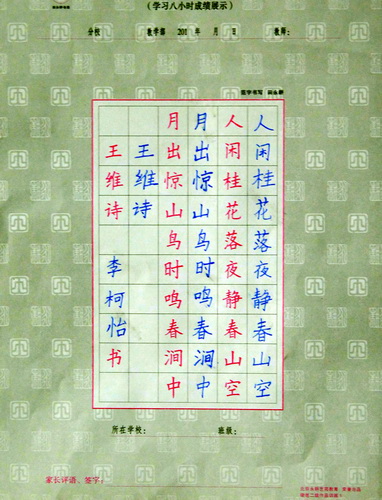 （学习八小时成绩展示）
分校 教学部 201 年 月 日 教师：
人闲桂花落夜静春山空
人闲桂花落夜静春山空
月出惊山鸟时鸣春涧中
月出惊山鸟时鸣春涧中
王维诗
王维诗 李柯怡书
所在学校： 班级：
家长评语、签字：